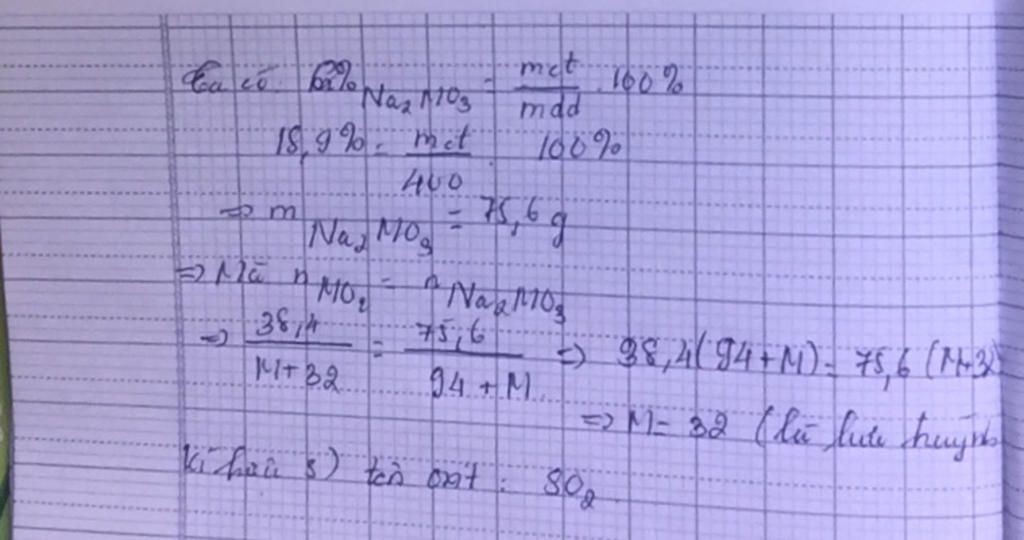 Ta có C% Na₂MO₃ = mct/mdd . 100%
18,9% = mct/400 . 100%
=> m Na₂MO₃ = 75,6 g
=> Mà n MO₂ = n Na₂MO₃
=> 38,4/(M+32) = 75,6/(94+M) => 38,4(94+M) = 75,6(M+32)
=> M = 32 (là lưu huỳnh
kí hiệu S) tên oxit : SO₂